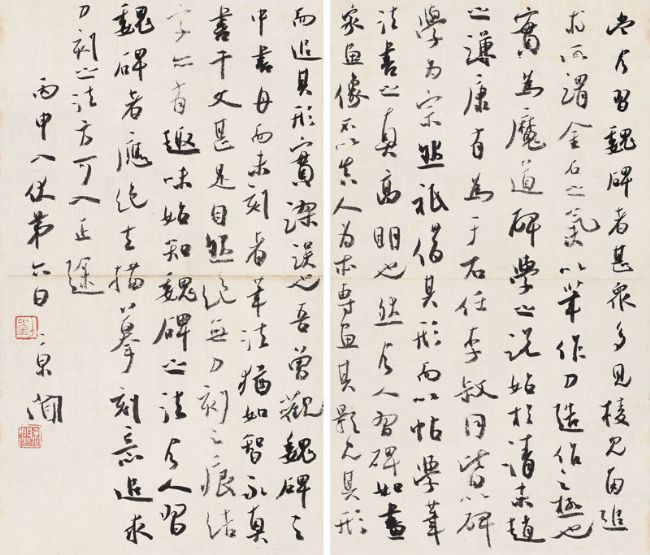 当今習魏碑者甚眾多見棱見角追
求所謂金石之氣以筆作刀造作之極也
實為魔道碑學之說始於清末趙
之謙康有為于右任李叔同皆以碑
學為宗然祇借其形而以帖學筆
法書之真高明也然今人習碑如畫
家畫像不以真人為本專畫其影見其形
而追其形實謬誤也吾曾觀魏碑之
中書丹而未刻者筆法猶如智永真
書千文甚是自然絕無刀刻之痕結
字亦有趣味始知魏碑之法今人習
魏碑者應絕去描摹刻意追求
刀刻之法方可入正途
丙申入伏第六日京聞